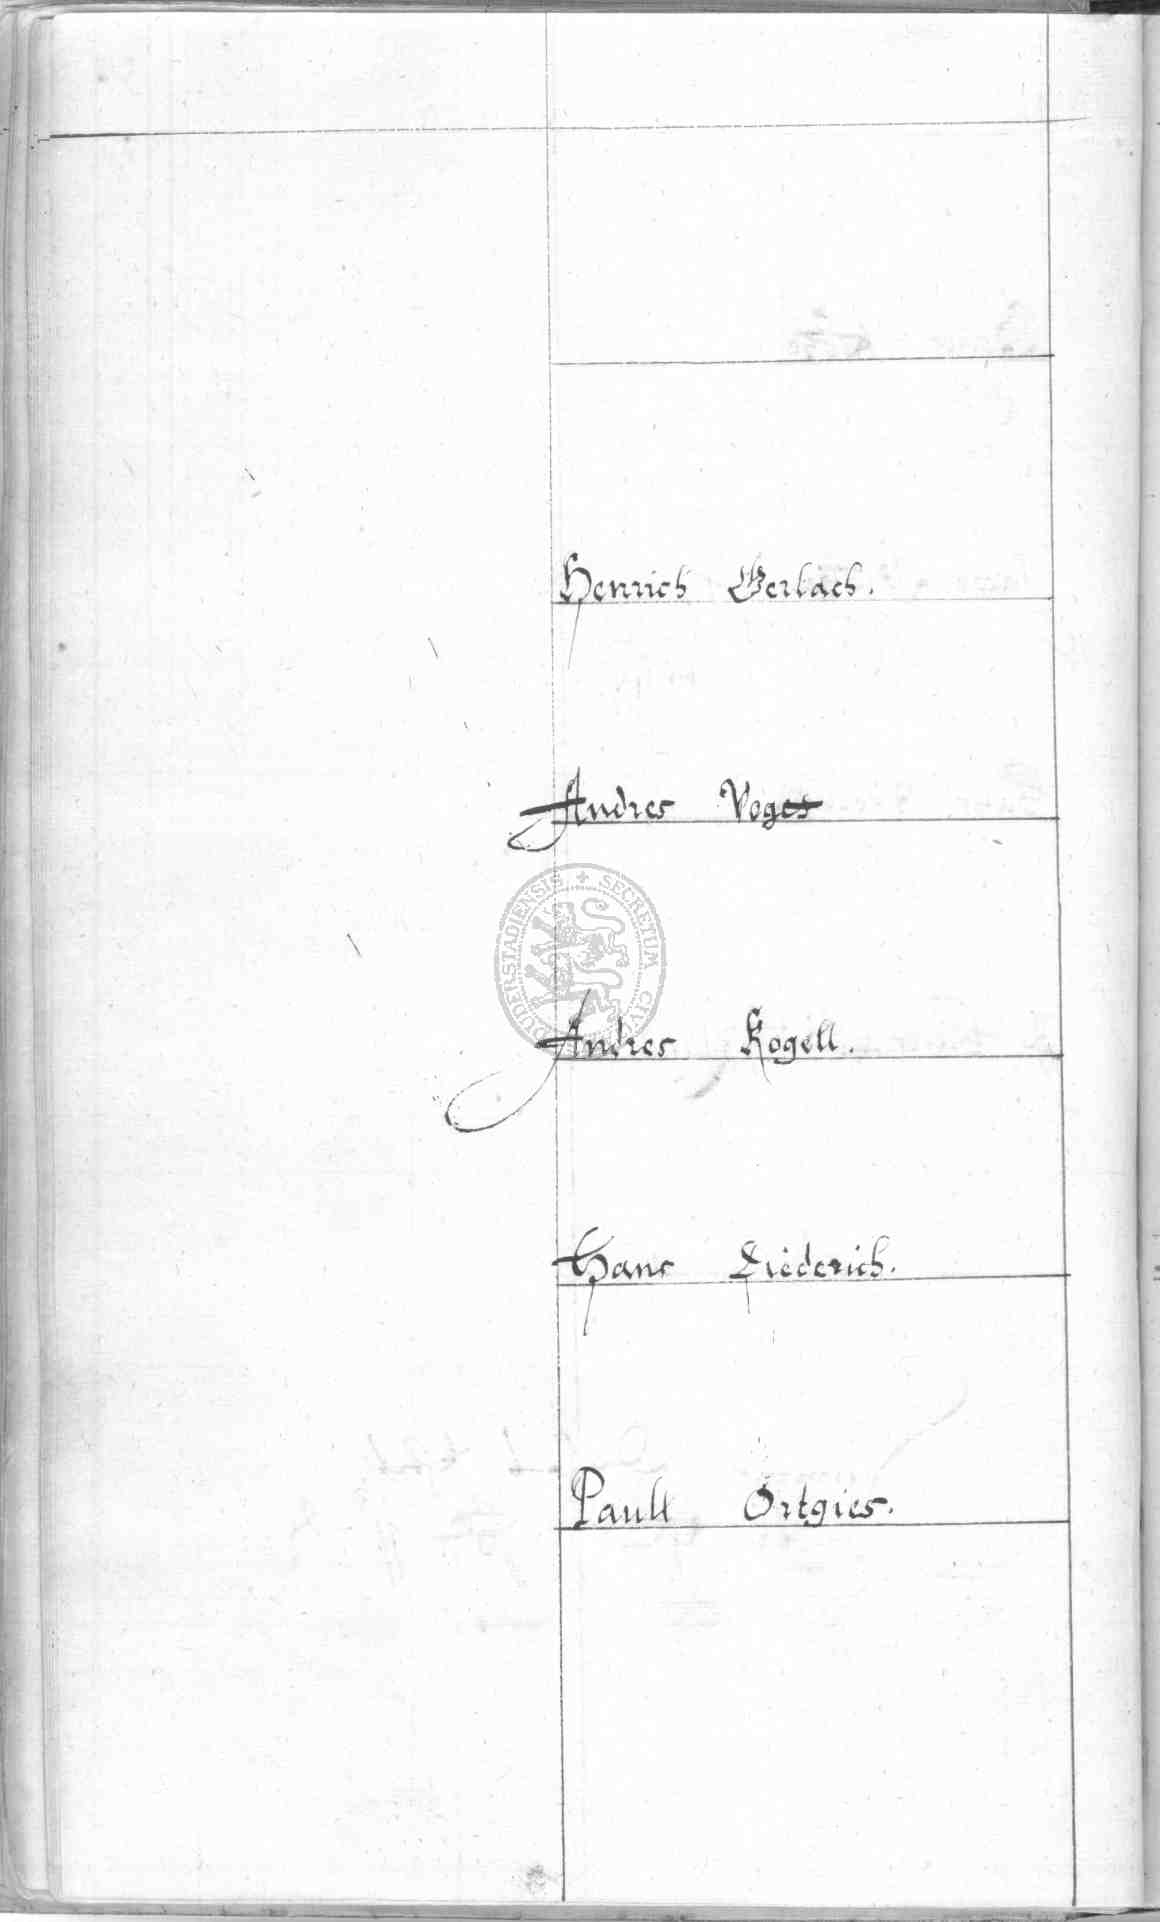 Henrich Gerlach.
Andres Voges
SECRETUM CIVI
DUDERSTADIENSIS
Andres Kogell.
Hans Diederich.
Paull Ortgies.